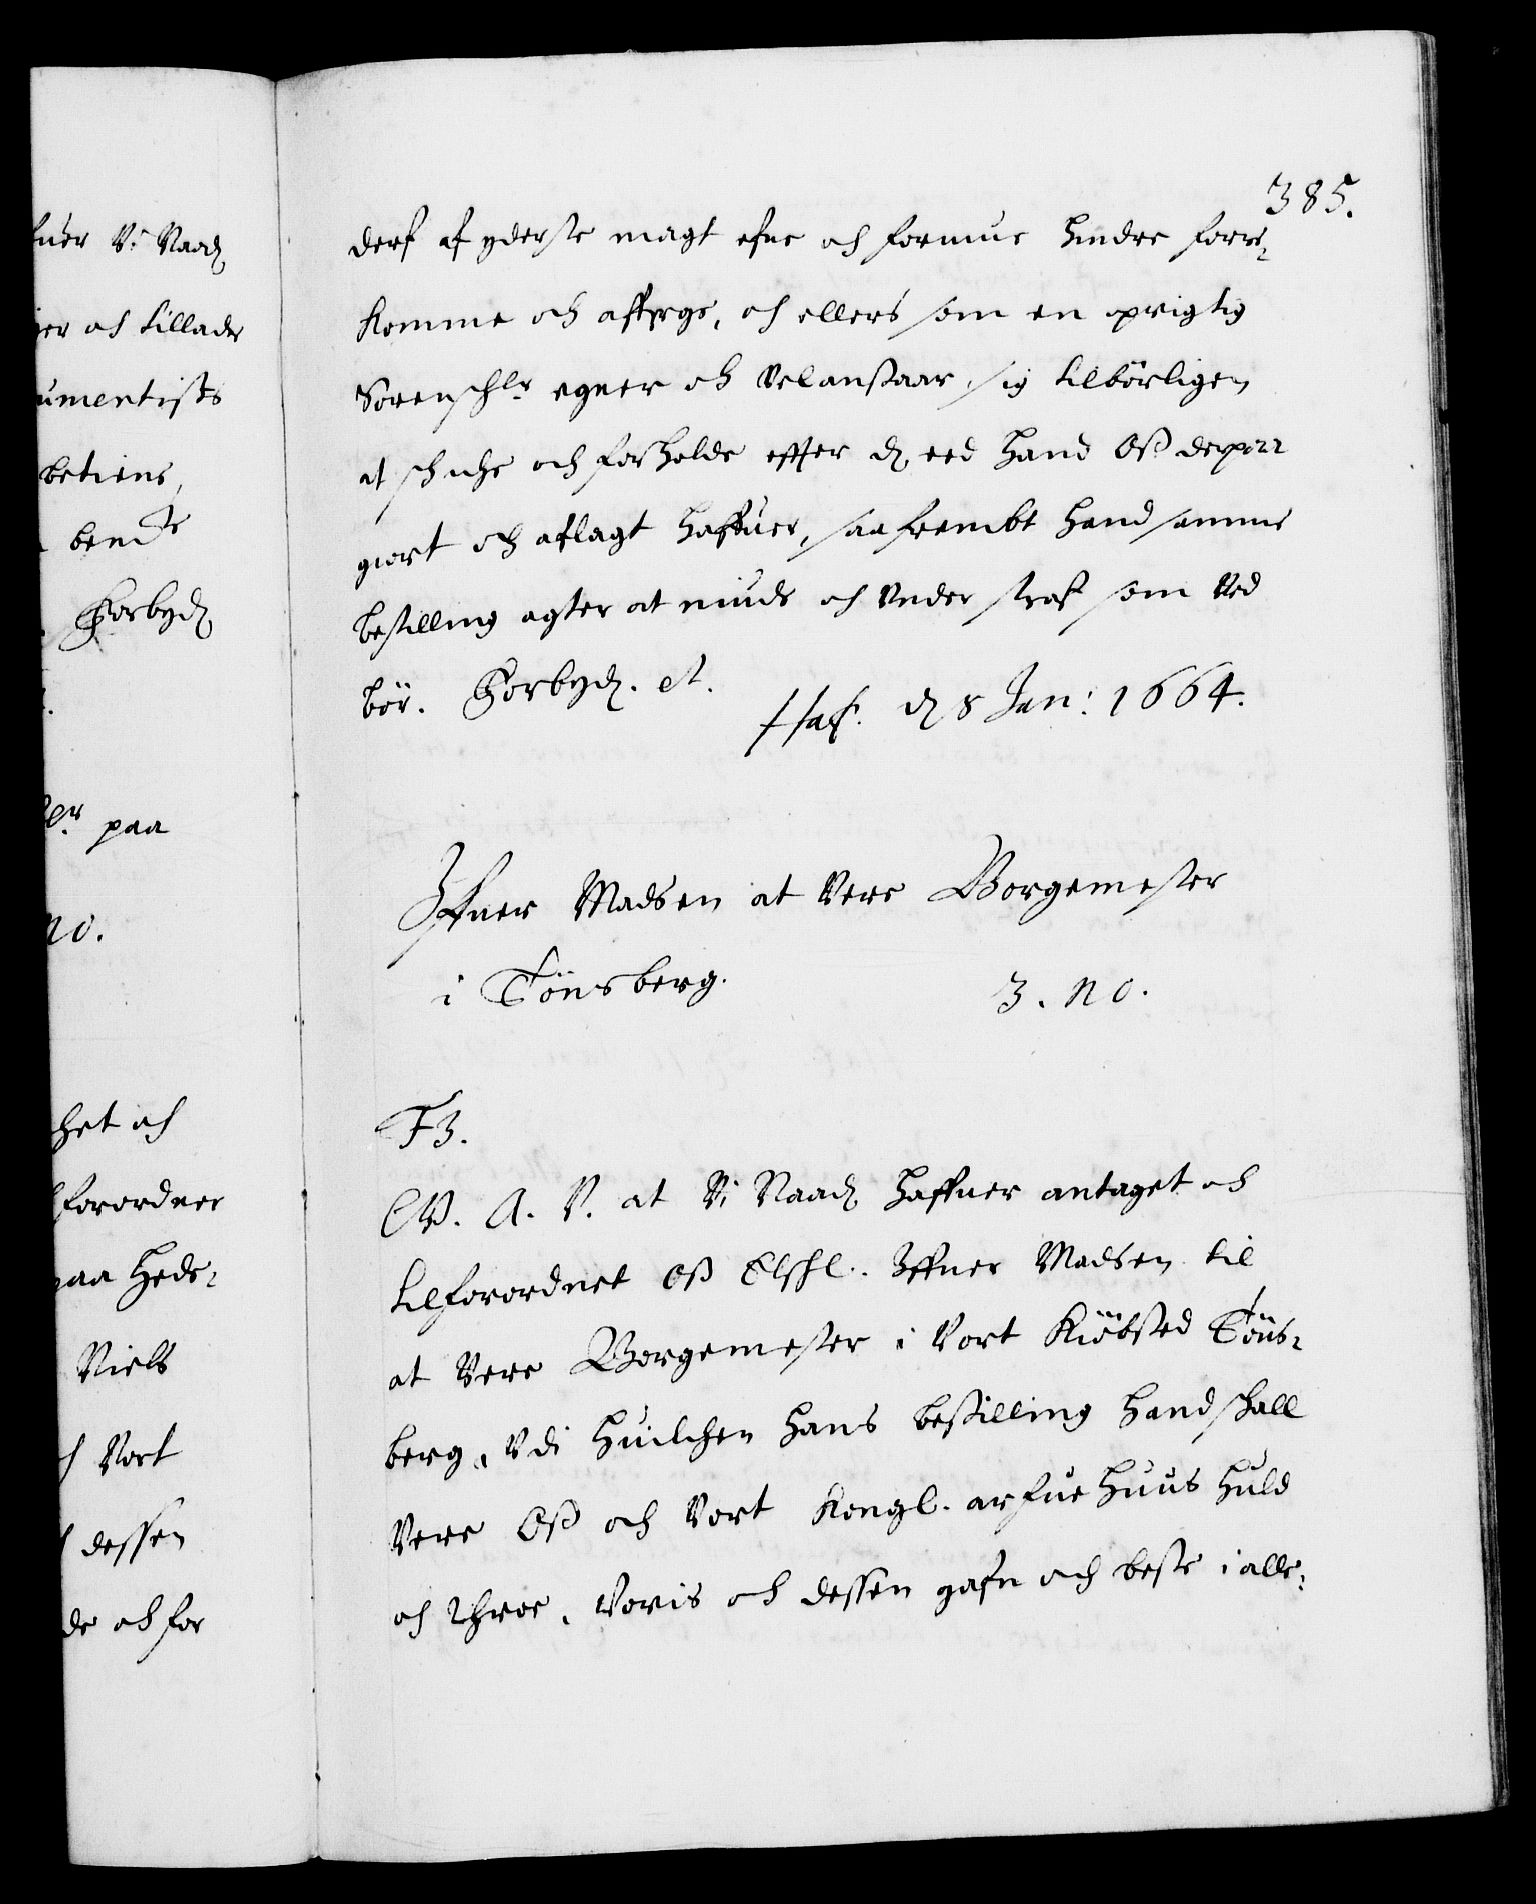 fuer Vi Naad
er och tillader
umentists
betiens,
bemte
Forbyd
lr. paa
no.
het och
forordner
paa Heds-
Niels
Vort
dessen
de och for
385.
derf af yderste magt efne och formue hindre forre-
komme och affverge, och ellers som en oprigtig
Sorenschr egner och Velanstaar, sig tilbörligen
at schiche och forholde effter d. eed hand Oß derpaa
giort och aflagt haffuer, saa frembt hand samme
bestilling agter at niude och Vnder straf som Ved
bör. Forbyd. et.
Haf. d 8 Jan: 1664.
Iffuer Madsen at Vere Borgemester
i Tönsberg.
3. no.
F3.
G. A. V. at Vi Naad haffuer antaget och
tilforordnet Oß Elshl. Iffuer Madsen til
at Vere Borgemester i Vort Kiöbsted Töns-
berg, Vdi huilchen hans bestilling hand schall
Vere Oß och Vort Kongl. arfue Huus huld
och throe, Voris och dessen gafn och beste i alle-